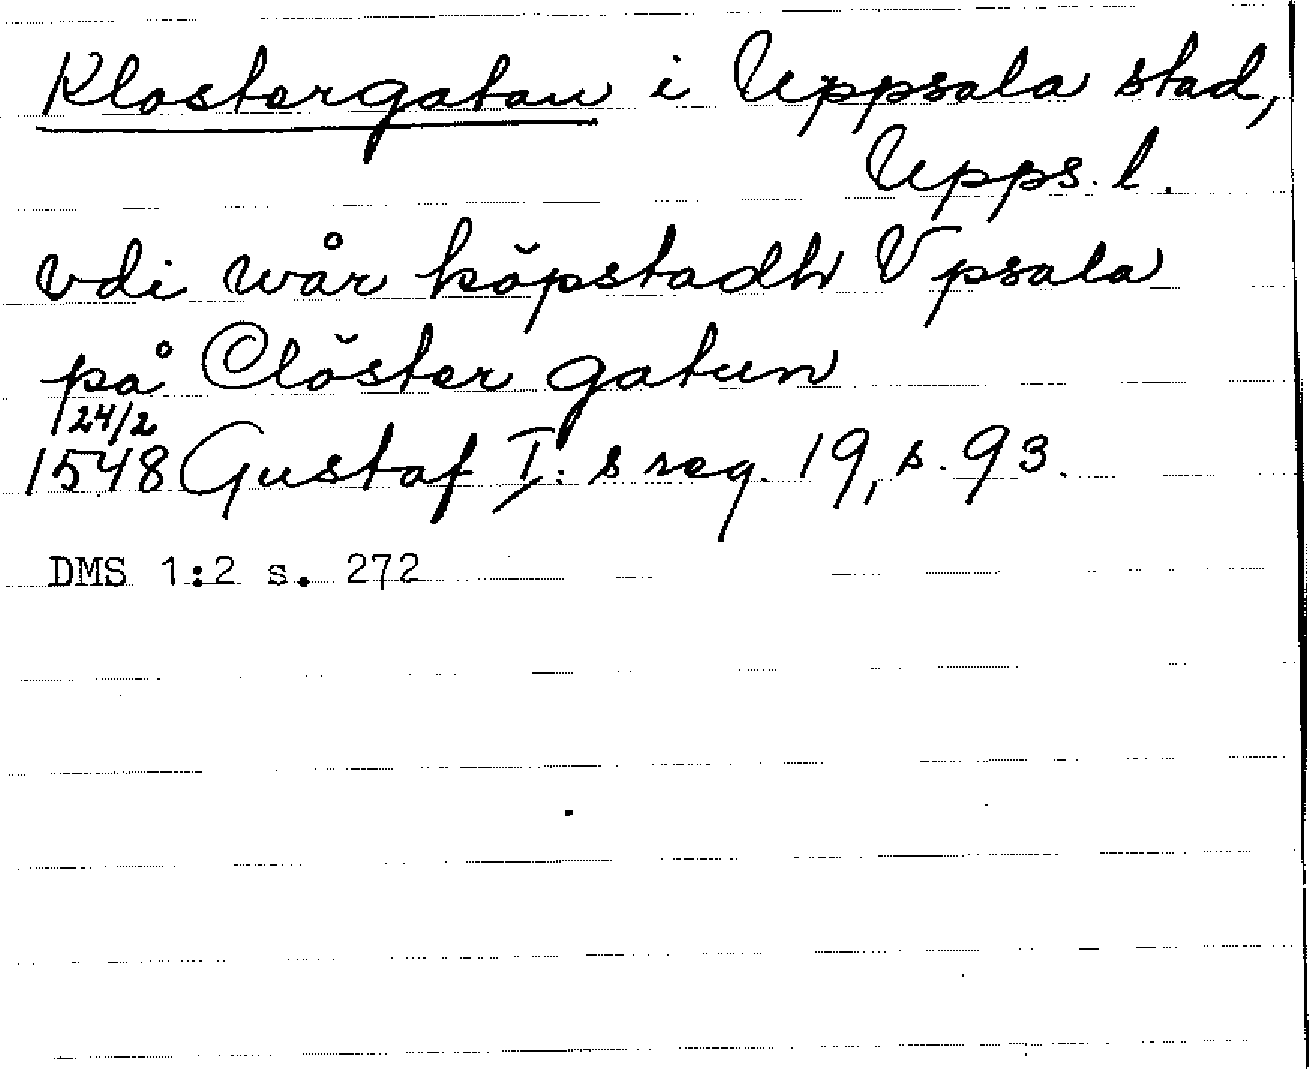 Klostergatan i Uppsala stad,
Upps. l.
vdi wår kŏpstadh Vpsala
på Clŏster gatun
24/2
1548 Gustaf I:s reg. 19, s. 93.
DMS 1:2 s. 272